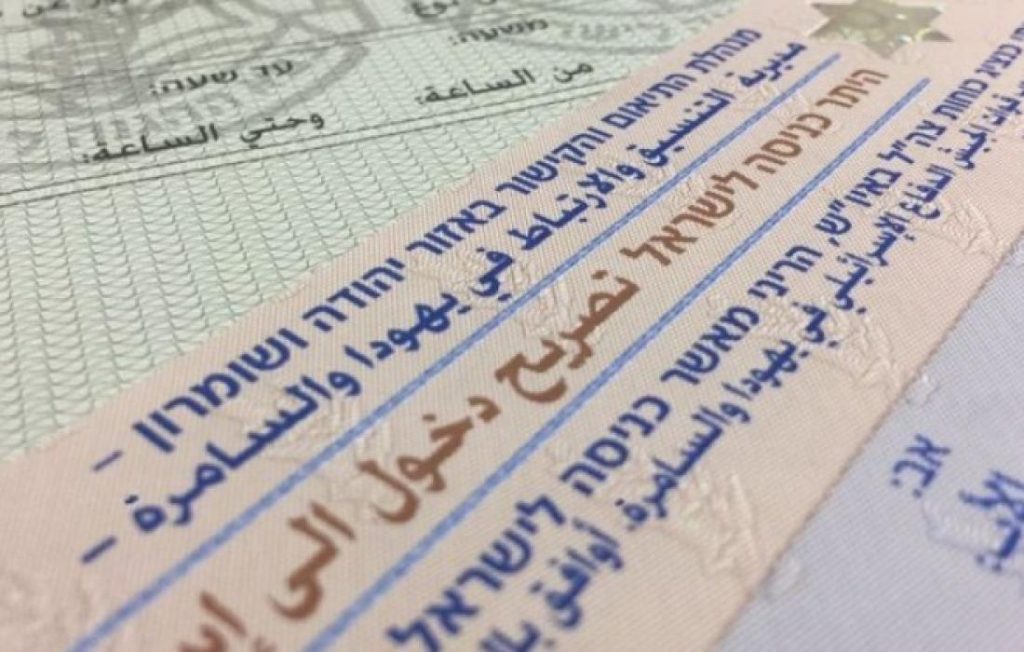 נוע
משעה:
من الساعة:
עד שעה:
وحتي الساعة:
מנהלת התיאום והקישור באזור יהודה ושומרון -
مديرية التنسيق والارتباط في يهودا والسامرة -
היתר כניסה לישראל تصريح دخول الى
כוחות צה"ל באיו"ש, הריני מאשר כניסה לישראל
الجيش الدفاع الإسرائيلي في يهودا والسامرة. أوافق
אב:
الأب: